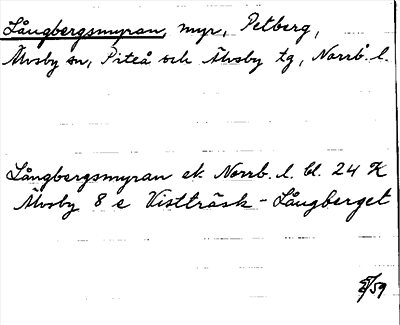 Långbergsmyran, myr, Petberg,
Älvsby sn, Piteå och Älvsby tg, Norrb. l.
Långbergsmyran ek. Norrb. l. bl. 24 K
Älvsby 8 e Vistträsk - Långberget
/59